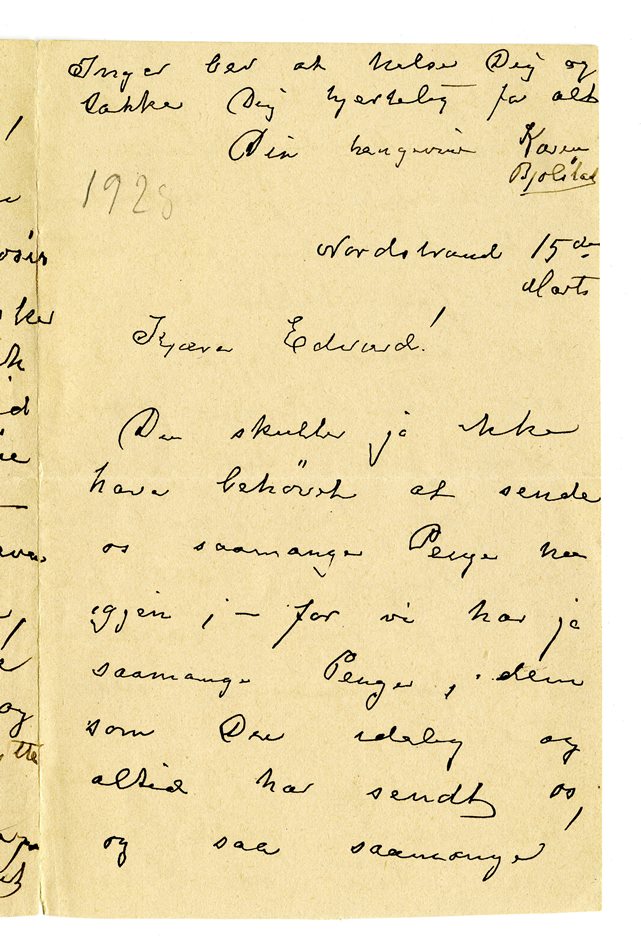 Inger ber at helse Dig og
takke Dig hjertelig for alt
Din hengivne Karen
Bjølstad
1928
Nordstrand 15de
Marts
Kjære Edvard!
Du skulde jo ikke
have behövet at sende
os saamange Penge nu
igjen; — for vi har jo
saamange Penger, dem
som Du idelig og
altid har sendt os,
og saa saamange